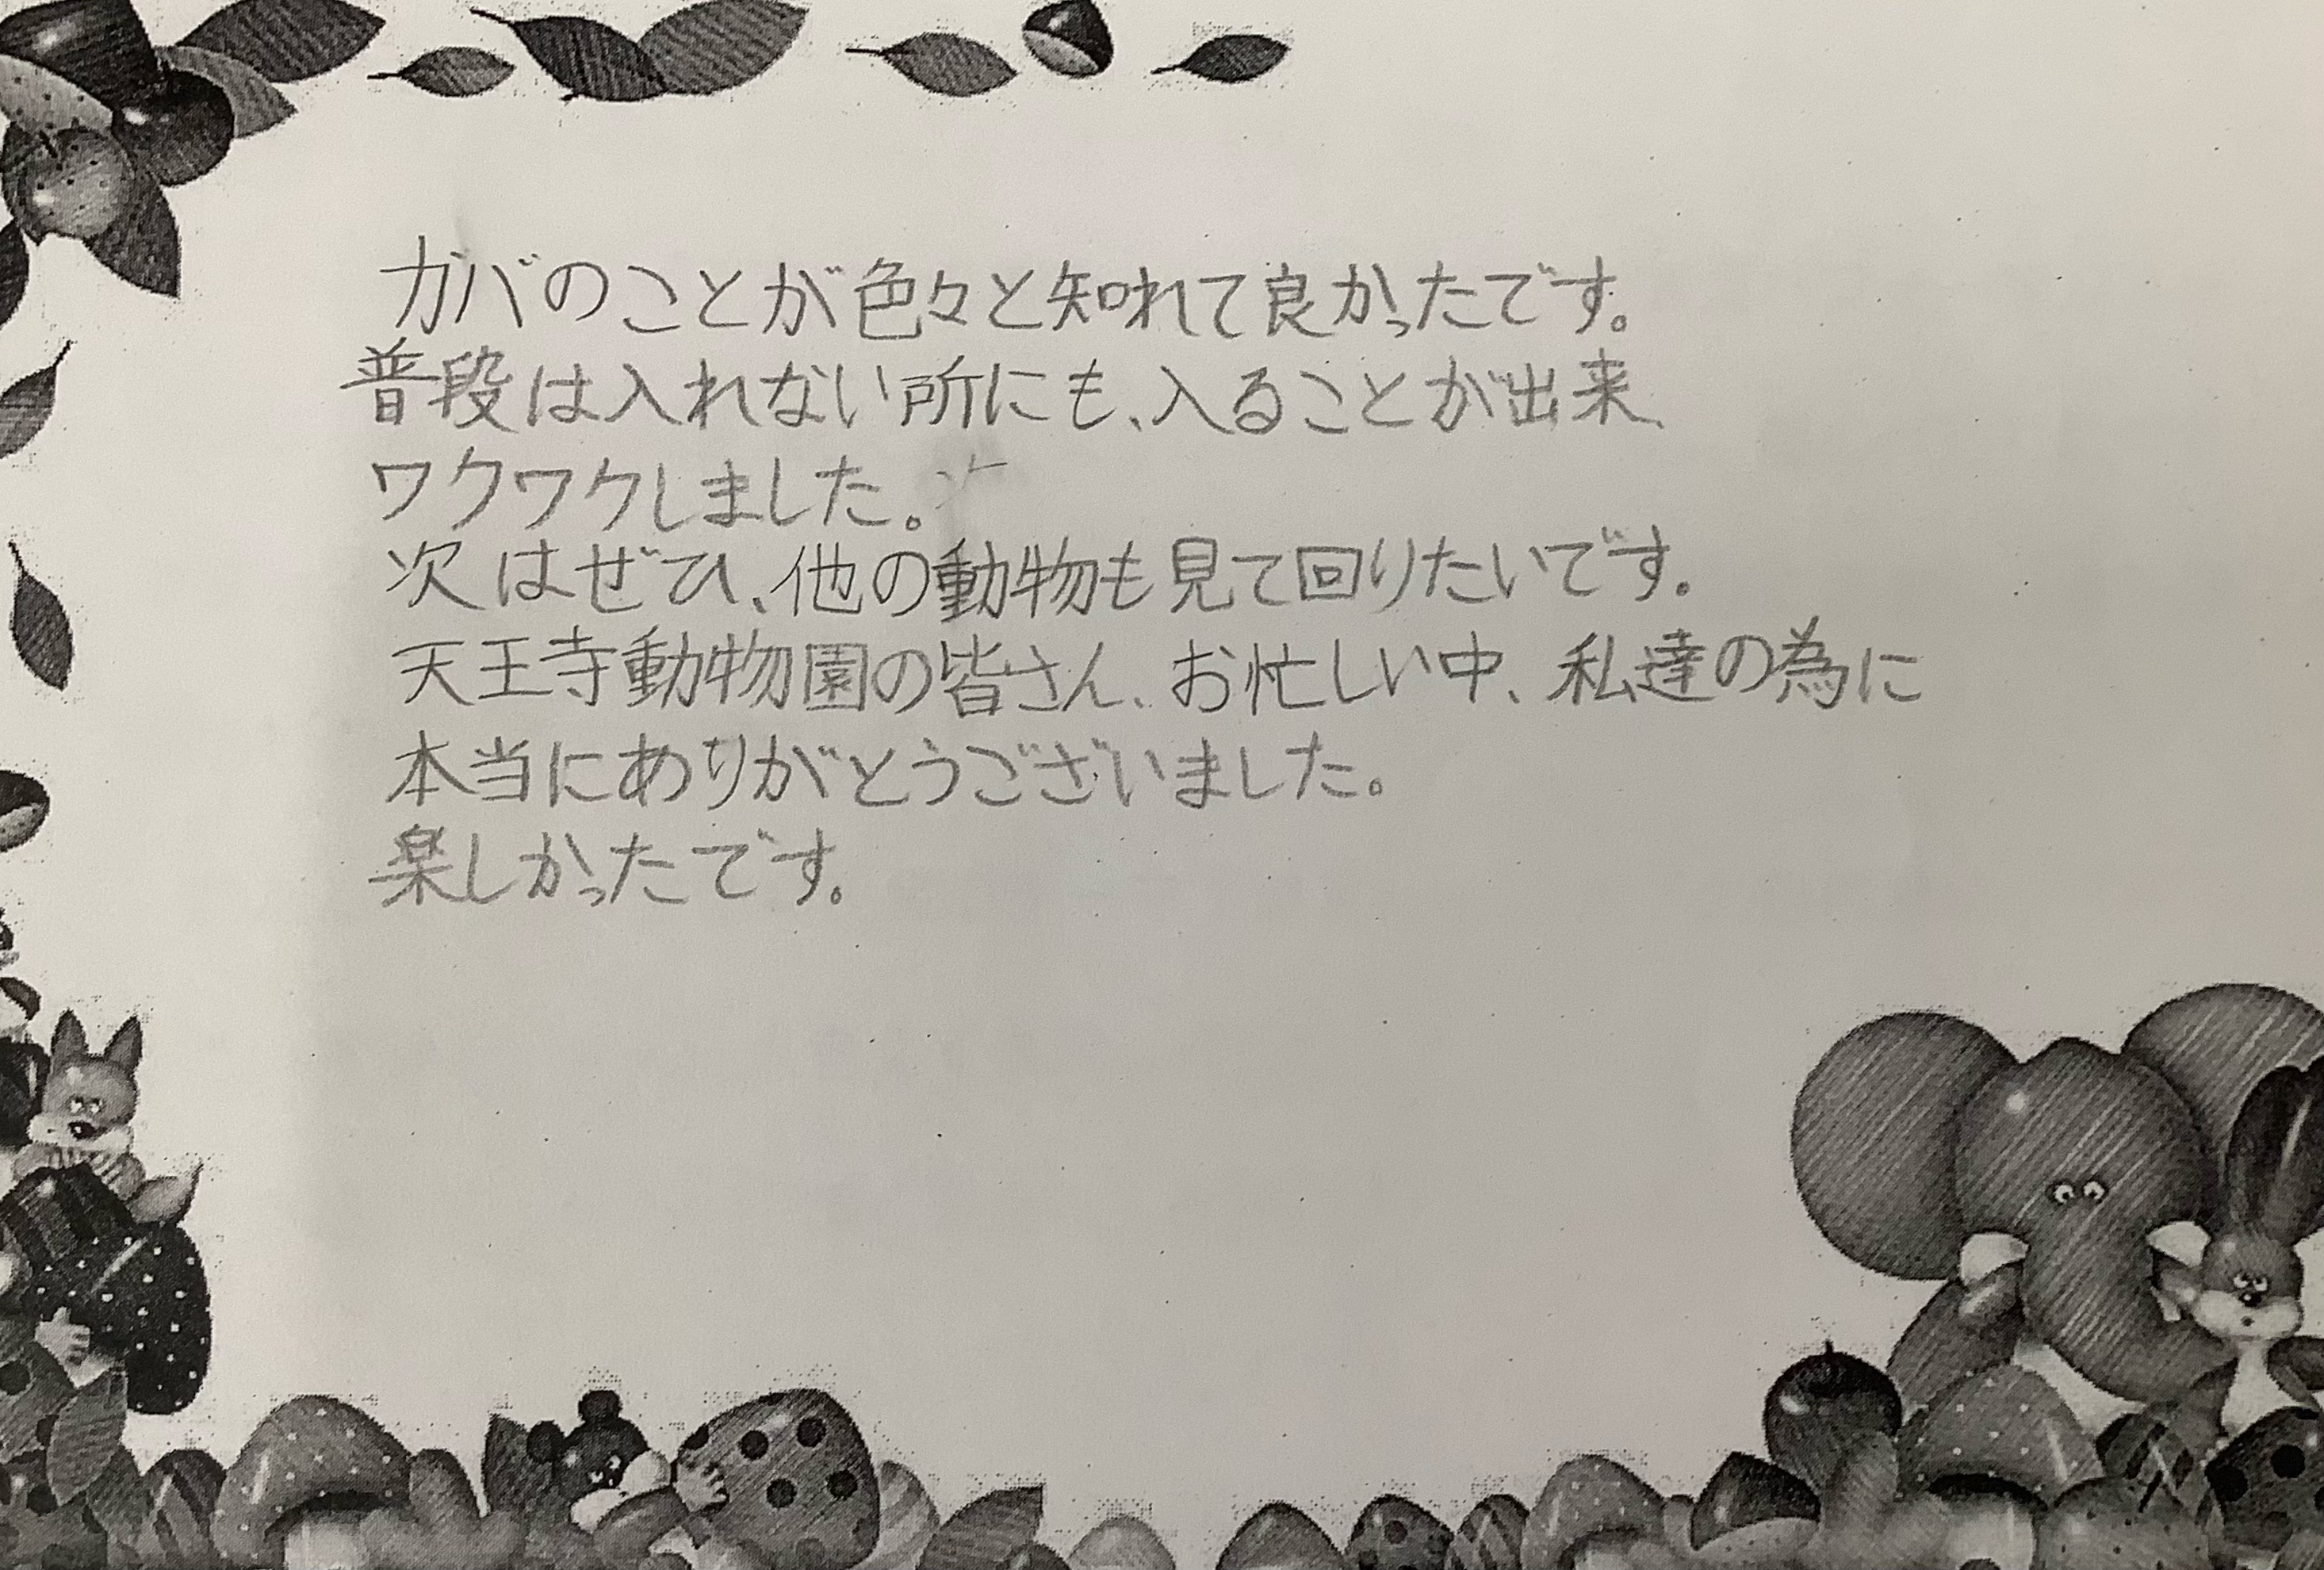 カバのことが色々と知れて良かったです。
普段は入れない所にも、入ることが出来、
ワクワクしました。
次はぜひ、他の動物も見て回りたいです。
天王寺動物園の皆さん、お忙しい中、私達の為に
本当にありがとうございました。
楽しかったです。